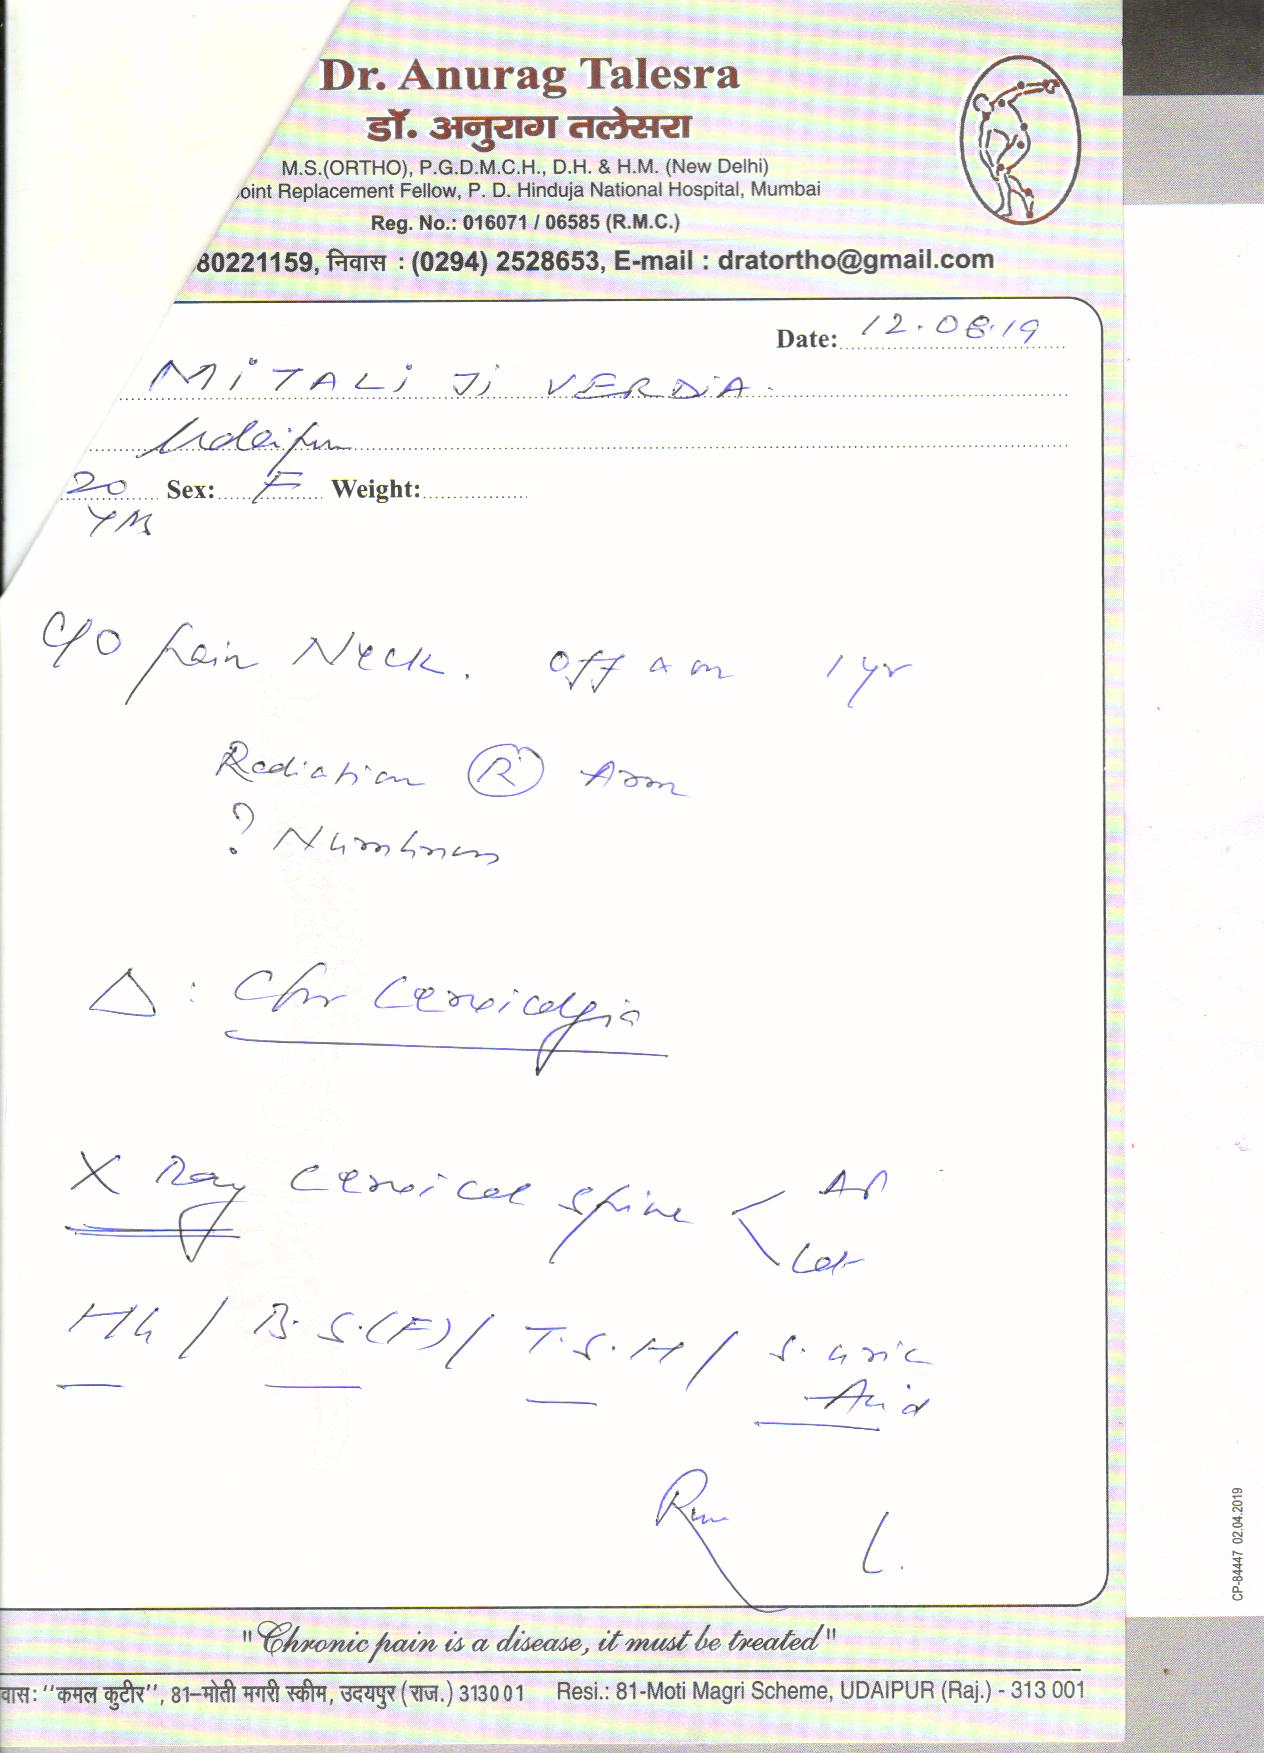 Dr. Anurag Talesra
डॉ. अनुराग तलेसरा
M.S.(ORTHO), P.G.D.M.C.H., D.H. & H.M. (New Delhi)
oint Replacement Fellow, P. D. Hinduja National Hospital, Mumbai
Reg. No.: 016071 / 06585 (R.M.C.)
80221159, निवास : (0294) 2528653, E-mail : dratortho@gmail.com
Date: 12.08.19
MiTALi Ji VERDiA.
Udaipur
20 Sex: F Weight:
Yrs
C/O Pain Neck. Off & on 1 yr
Radiation (R) Arm
? Numbness
Δ : Chr Cervicalgia
X Ray Cervical Spine < AP
Lat
Hb / B.S.(F) / T.S.H / S. Uric
Acid
"Chronic pain is a disease, it must be treated"
वास: ‘‘कमल कुटीर’’, 81–मोती मगरी स्कीम, उदयपुर (राज.) 313001 Resi.: 81-Moti Magri Scheme, UDAIPUR (Raj.) - 313 001
CP-84447 02.04.2019